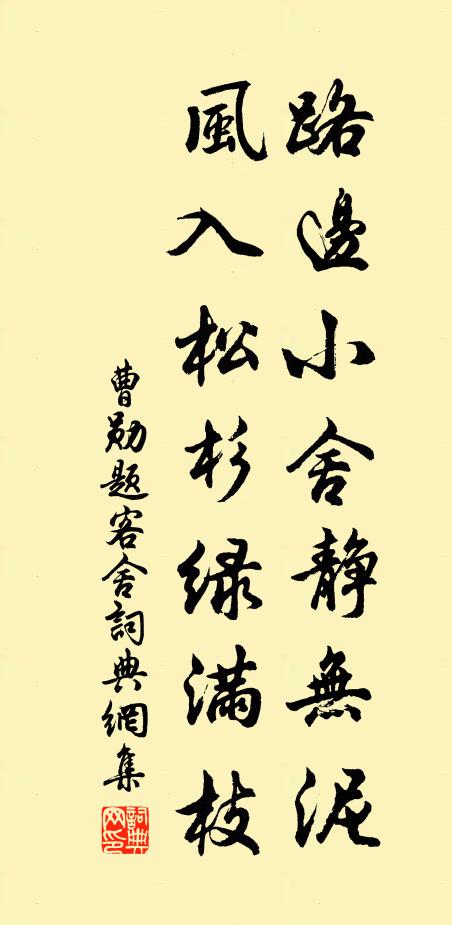 路邊小舍靜無泥
風入松杉緑滿枝
曹勛題客舍詞典網集
詞典網印